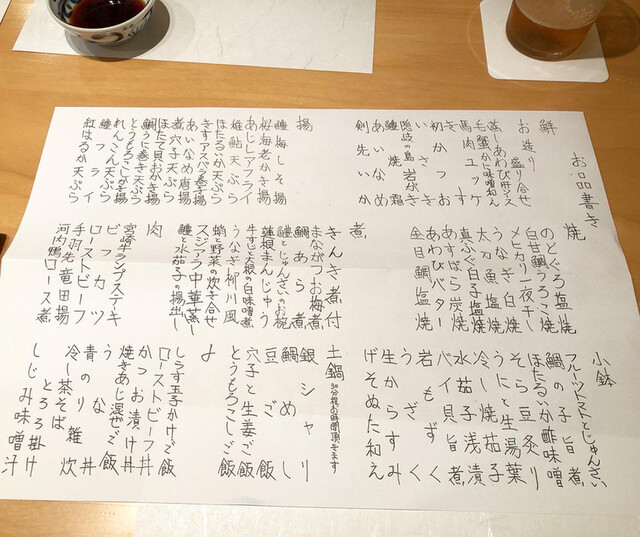 お品書き
鮮
お造り盛り合せ
蒸しあわび肝ソース
毛蟹かに味噌和ん
馬肉ユッケ
きす
初かつお
いさき
隠岐の島岩がき
鱧焼霜
あいなめ
剣先いか
揚
鱧梅しそ揚
桜海老かき揚
あじしそフライ
稚鮎天ぷら
ほたるいか天ぷら
きすアスパラ巻き揚
あいなめ唐揚
煮穴子天ぷら
ほたて貝おかき揚
鯛うに巻き天ぷら
とうもろこしかき揚
れんこん天ぷら
鱧フライ
紅はるか天ぷら
焼
のどぐろ塩焼
白甘鯛うろこ焼
メヒカリ一夜干し
うなぎ白焼
太刀魚塩焼
真ふぐ白子塩焼
あすぱら炭焼
あわびバター
金目鯛塩焼
煮
きんき煮付
まながつお梅煮
鯛あら煮
鱧とじゅんさいのお椀
蓮根まんじゅう
牛すじ大根の白味噌煮
うなぎ柳川風
蛸と野菜の炊き合せ
スジアラ中華蒸し
鱧と水茄子の揚出し
肉
宮崎牛ランプステーキ
ビフカツ
ローストビーフ
手羽先竜田揚
河内鴨ロース煮
小鉢
フルーツトマトとじゅんさい
鯛の子旨煮
ほたるいか酢味噌
そら豆炙り
うにと生湯葉
冷し焼茄子
水茄子浅漬
バイ貝旨煮
岩もずく
うざく
生からすみ
げそぬた和え
土鍋
30分程お時間頂きます
銀シャリ
鯛めし
豆ご飯
穴子と生姜ご飯
とうもろこしご飯
〆
しらす玉子かけご飯
ローストビーフ丼
かつお漬け丼
焼きあじ混ぜご飯
うな丼
青のり雑炊
冷し茶そば
とろろ掛け
しじみ味噌汁